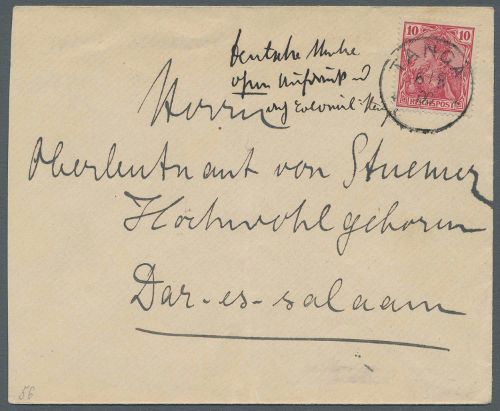 10 10
REICHSPOST
TANGA
6/8
Deutsche Marke
ohne Aufdruck
auf Colonial
Herrn
Oberleutnant von Stuemer
Hochwohlgeboren
Dar-es-salaam
56